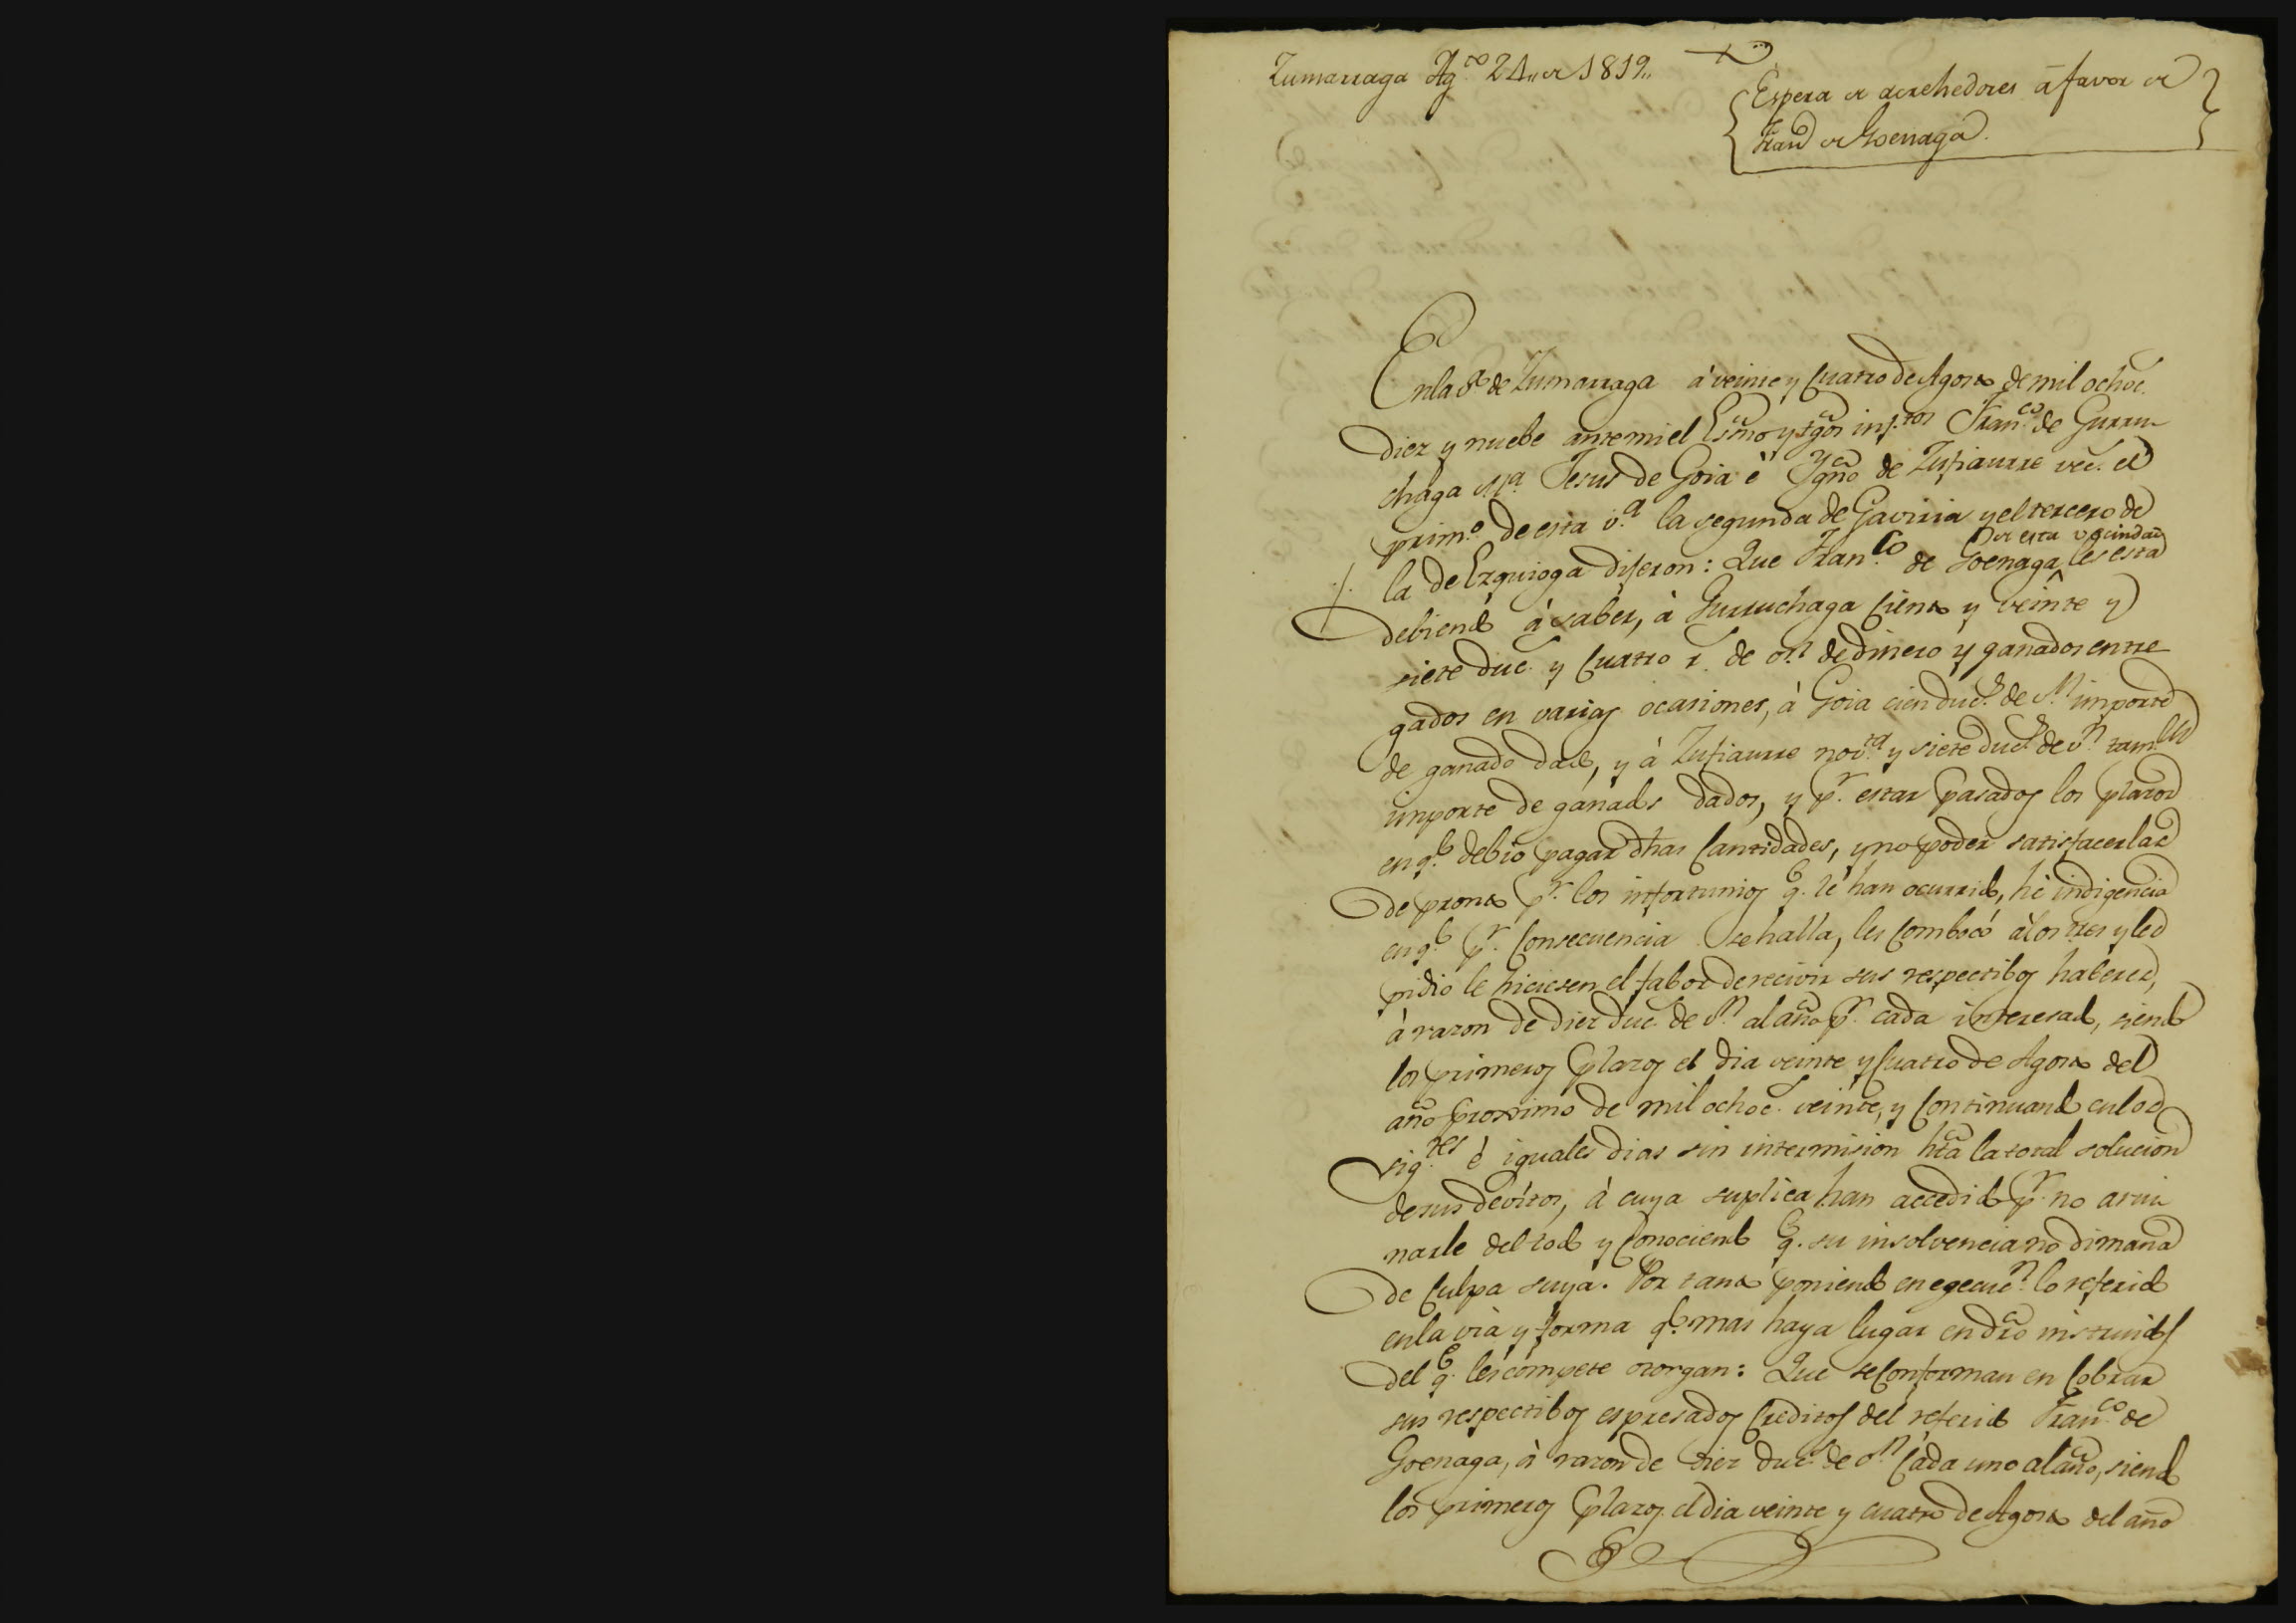 Zumarraga Ag.to 24,, de 1819,,
Espera de acrehedores á favor de
Fran.co de Goenaga.
En la V.a de Zumarraga á veinte y cuatro de Agosto de mil ochoc.s
diez y nuebe ante mi el Esno y tgos inf.tos Fran.co de Gurru-
chaga M.a Jesus de Goia è Ygno de Zufiaurre vec.s el
prim.o de esta v.a la segunda de Gaviria y el tercero de
de esta vecindad
la de Ezquioga dijeron: Que Fran.co de Goenaga les está
debiendo á saber, à Gurruchaga ciento y veinte y
siete duc.s y cuatro r.s de v.n de dinero y ganados entre-
gados en varias ocasiones, à Goia cien duc.s de v.n importe
de ganado dado, y à Zufiaurre nov.ta y siete duc.s de v.n tam.bien
importe de ganados dados, y p.r estar pasados los plazos
en q.e debio pagar dhas cantidades, y no poder satisfacerlas
de pronto p.r los infortunios q.e le han ocurrido, hè indigencia
en q.e p.r consecuencia se halla, les combocó à los tres y les
pidio le hiciesen el fabor de recivir sus respectibos haberes,
à razon de diez duc.s de v.n al año p.r cada interesado, siendo
los primeros plazos el dia veinte y cuatro de Agosto del
año proximo de mil ochoc.s veinte, y continuando en los
sig.tes è iguales dias sin intermision hta la total solucion
de sus devitos, à cuya suplica han accedido p.r no arrui-
narle del todo y conociendo q.e su insolvencia no dimana
de culpa suya. Por tanto poniendo en egecuc.n lo referido
en la via y forma q.e mas haya lugar en dro instruidos
del q.e les compete otorgan: Que se conforman en cobrar
sus respectibos espresados creditos del referido Fran.co de
Goenaga, à razon de diez duc.s de v.n cada uno al año, siendo
los primeros plazos el dia veinte y cuatro de Agosto del año